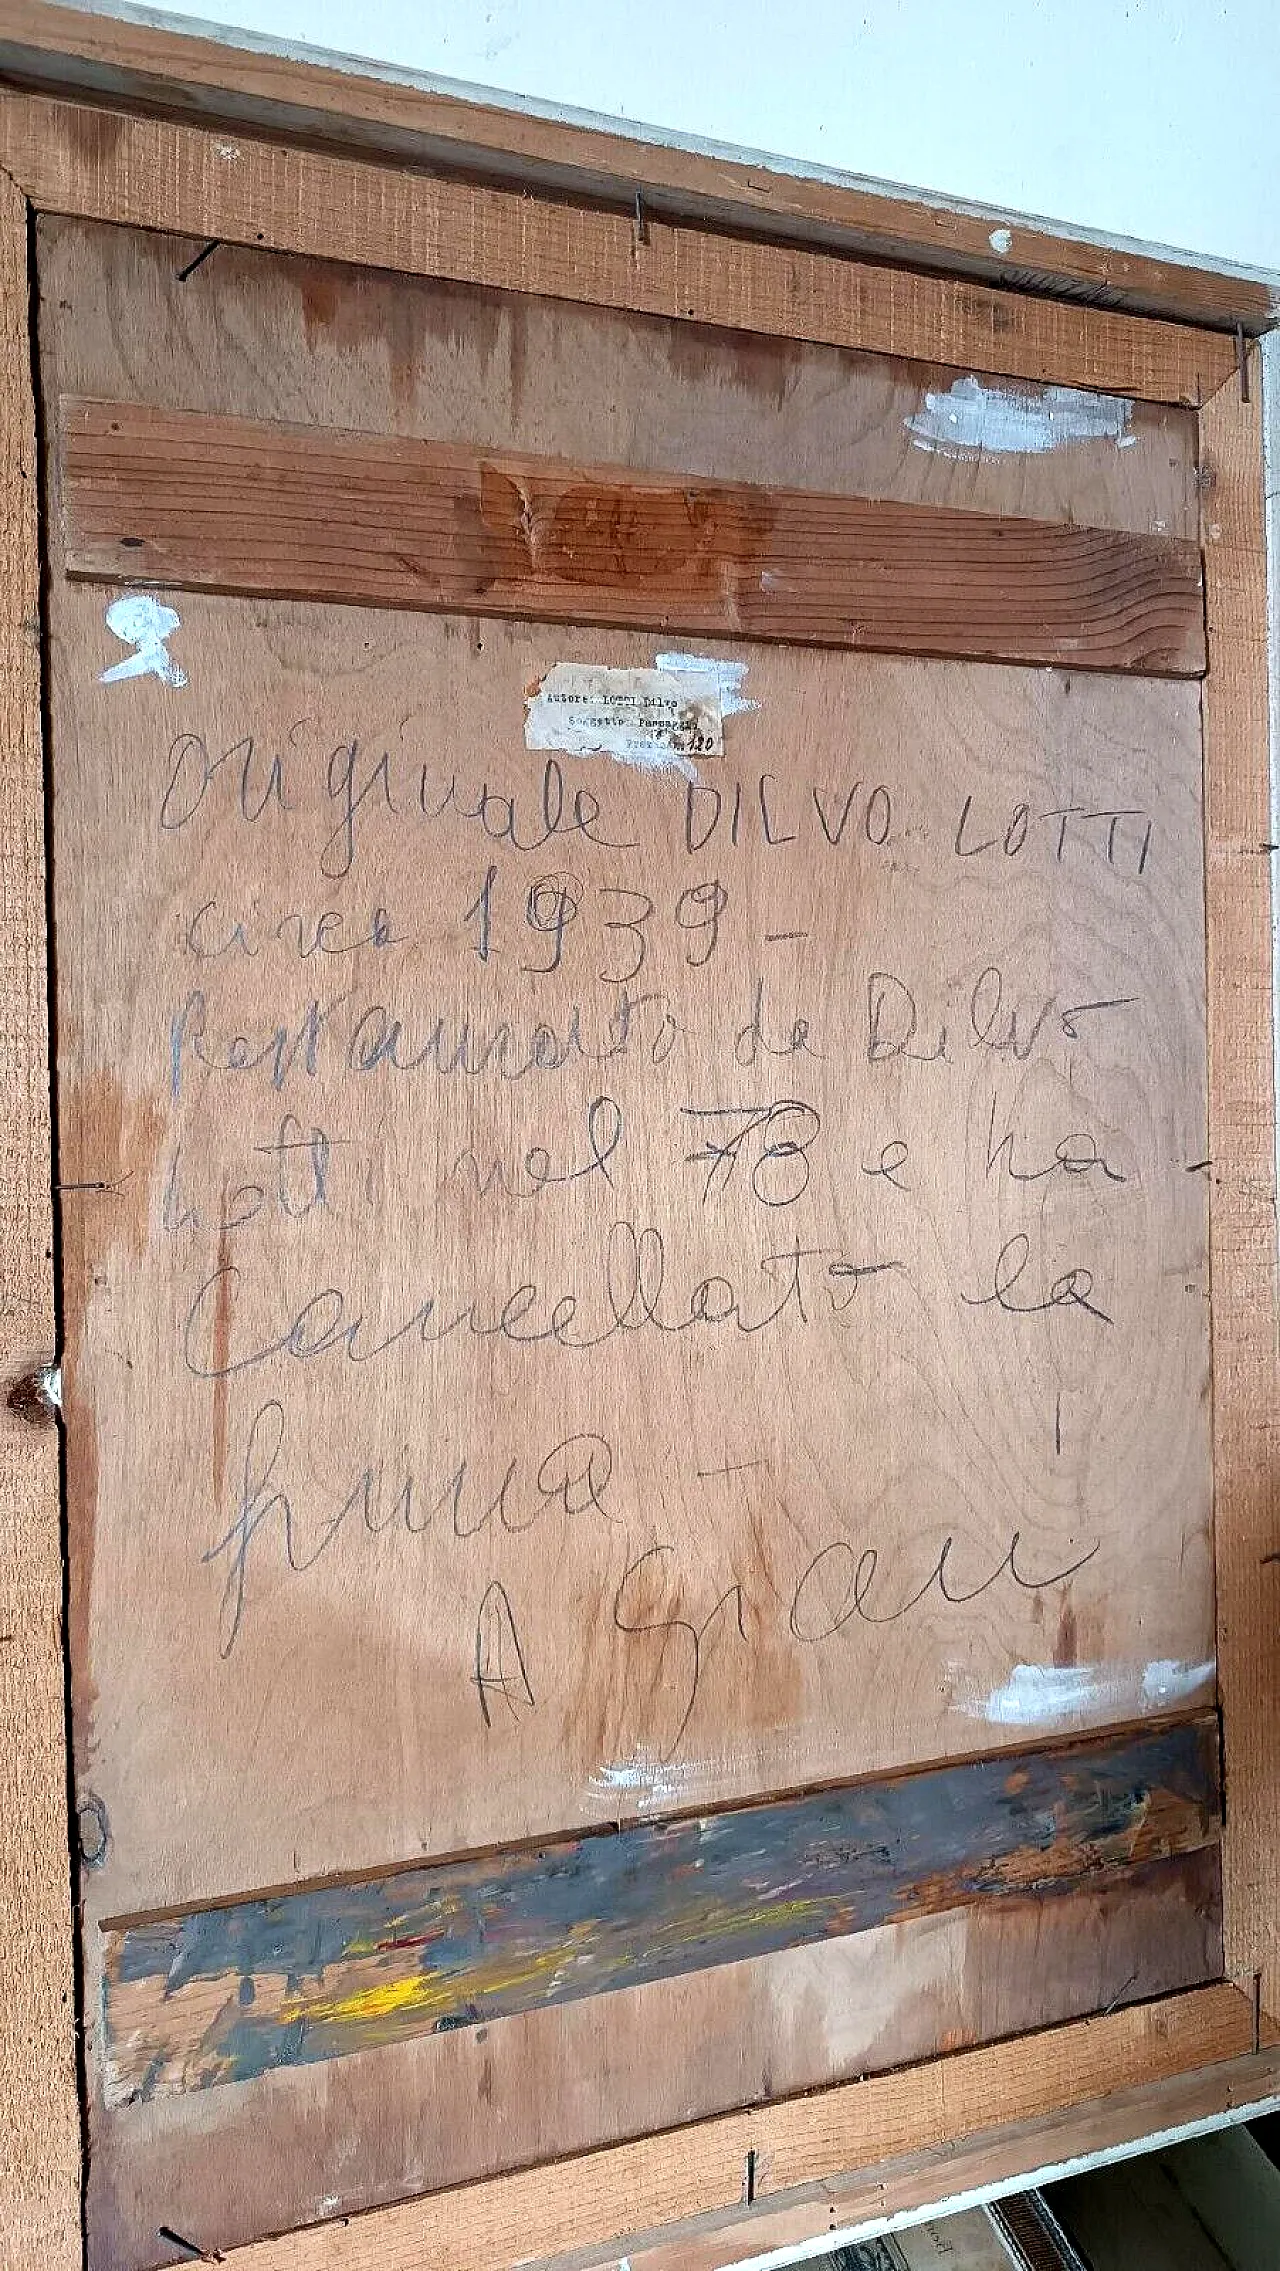 Autore: LOTTI Dilvo
Soggetto Paesaggio
120
Originale DILVO LOTTI
circa 1939 -
Restaurato da Dilvo
Lotti nel 78 e ha
Cancellato la
firma -
A